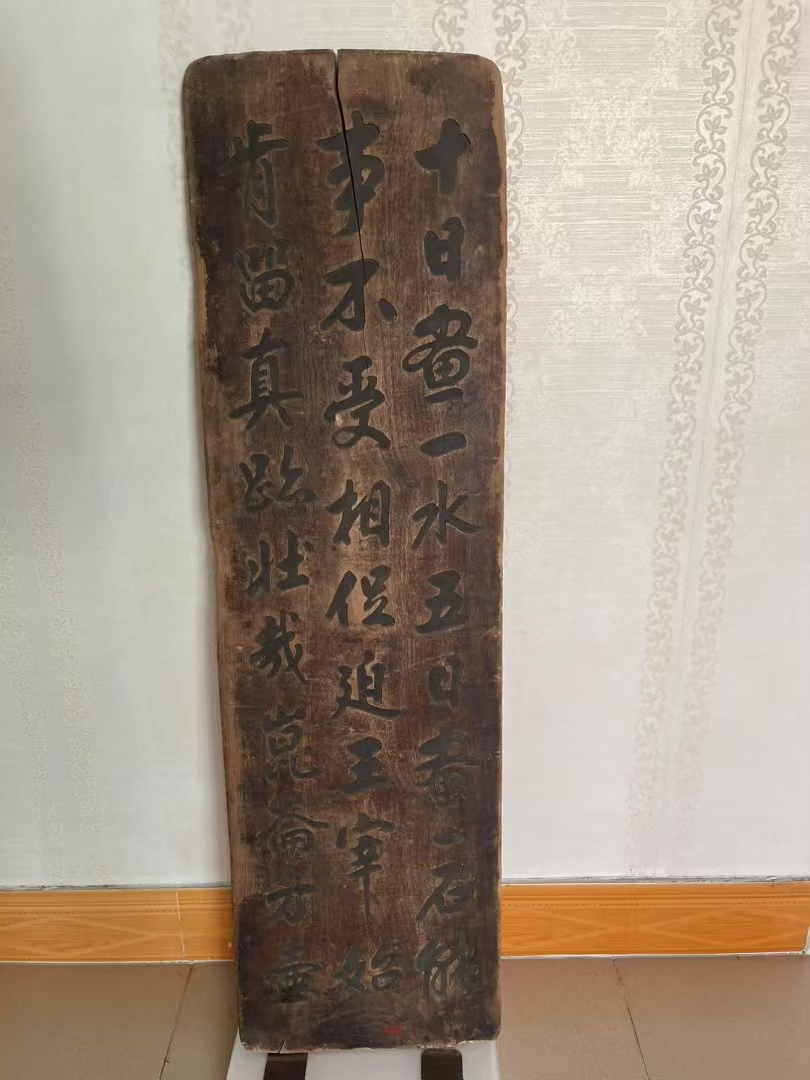 十日畫一水五日畫一石能
事不受相促迫王宰始
肯留真跡壯哉崑崙方壺